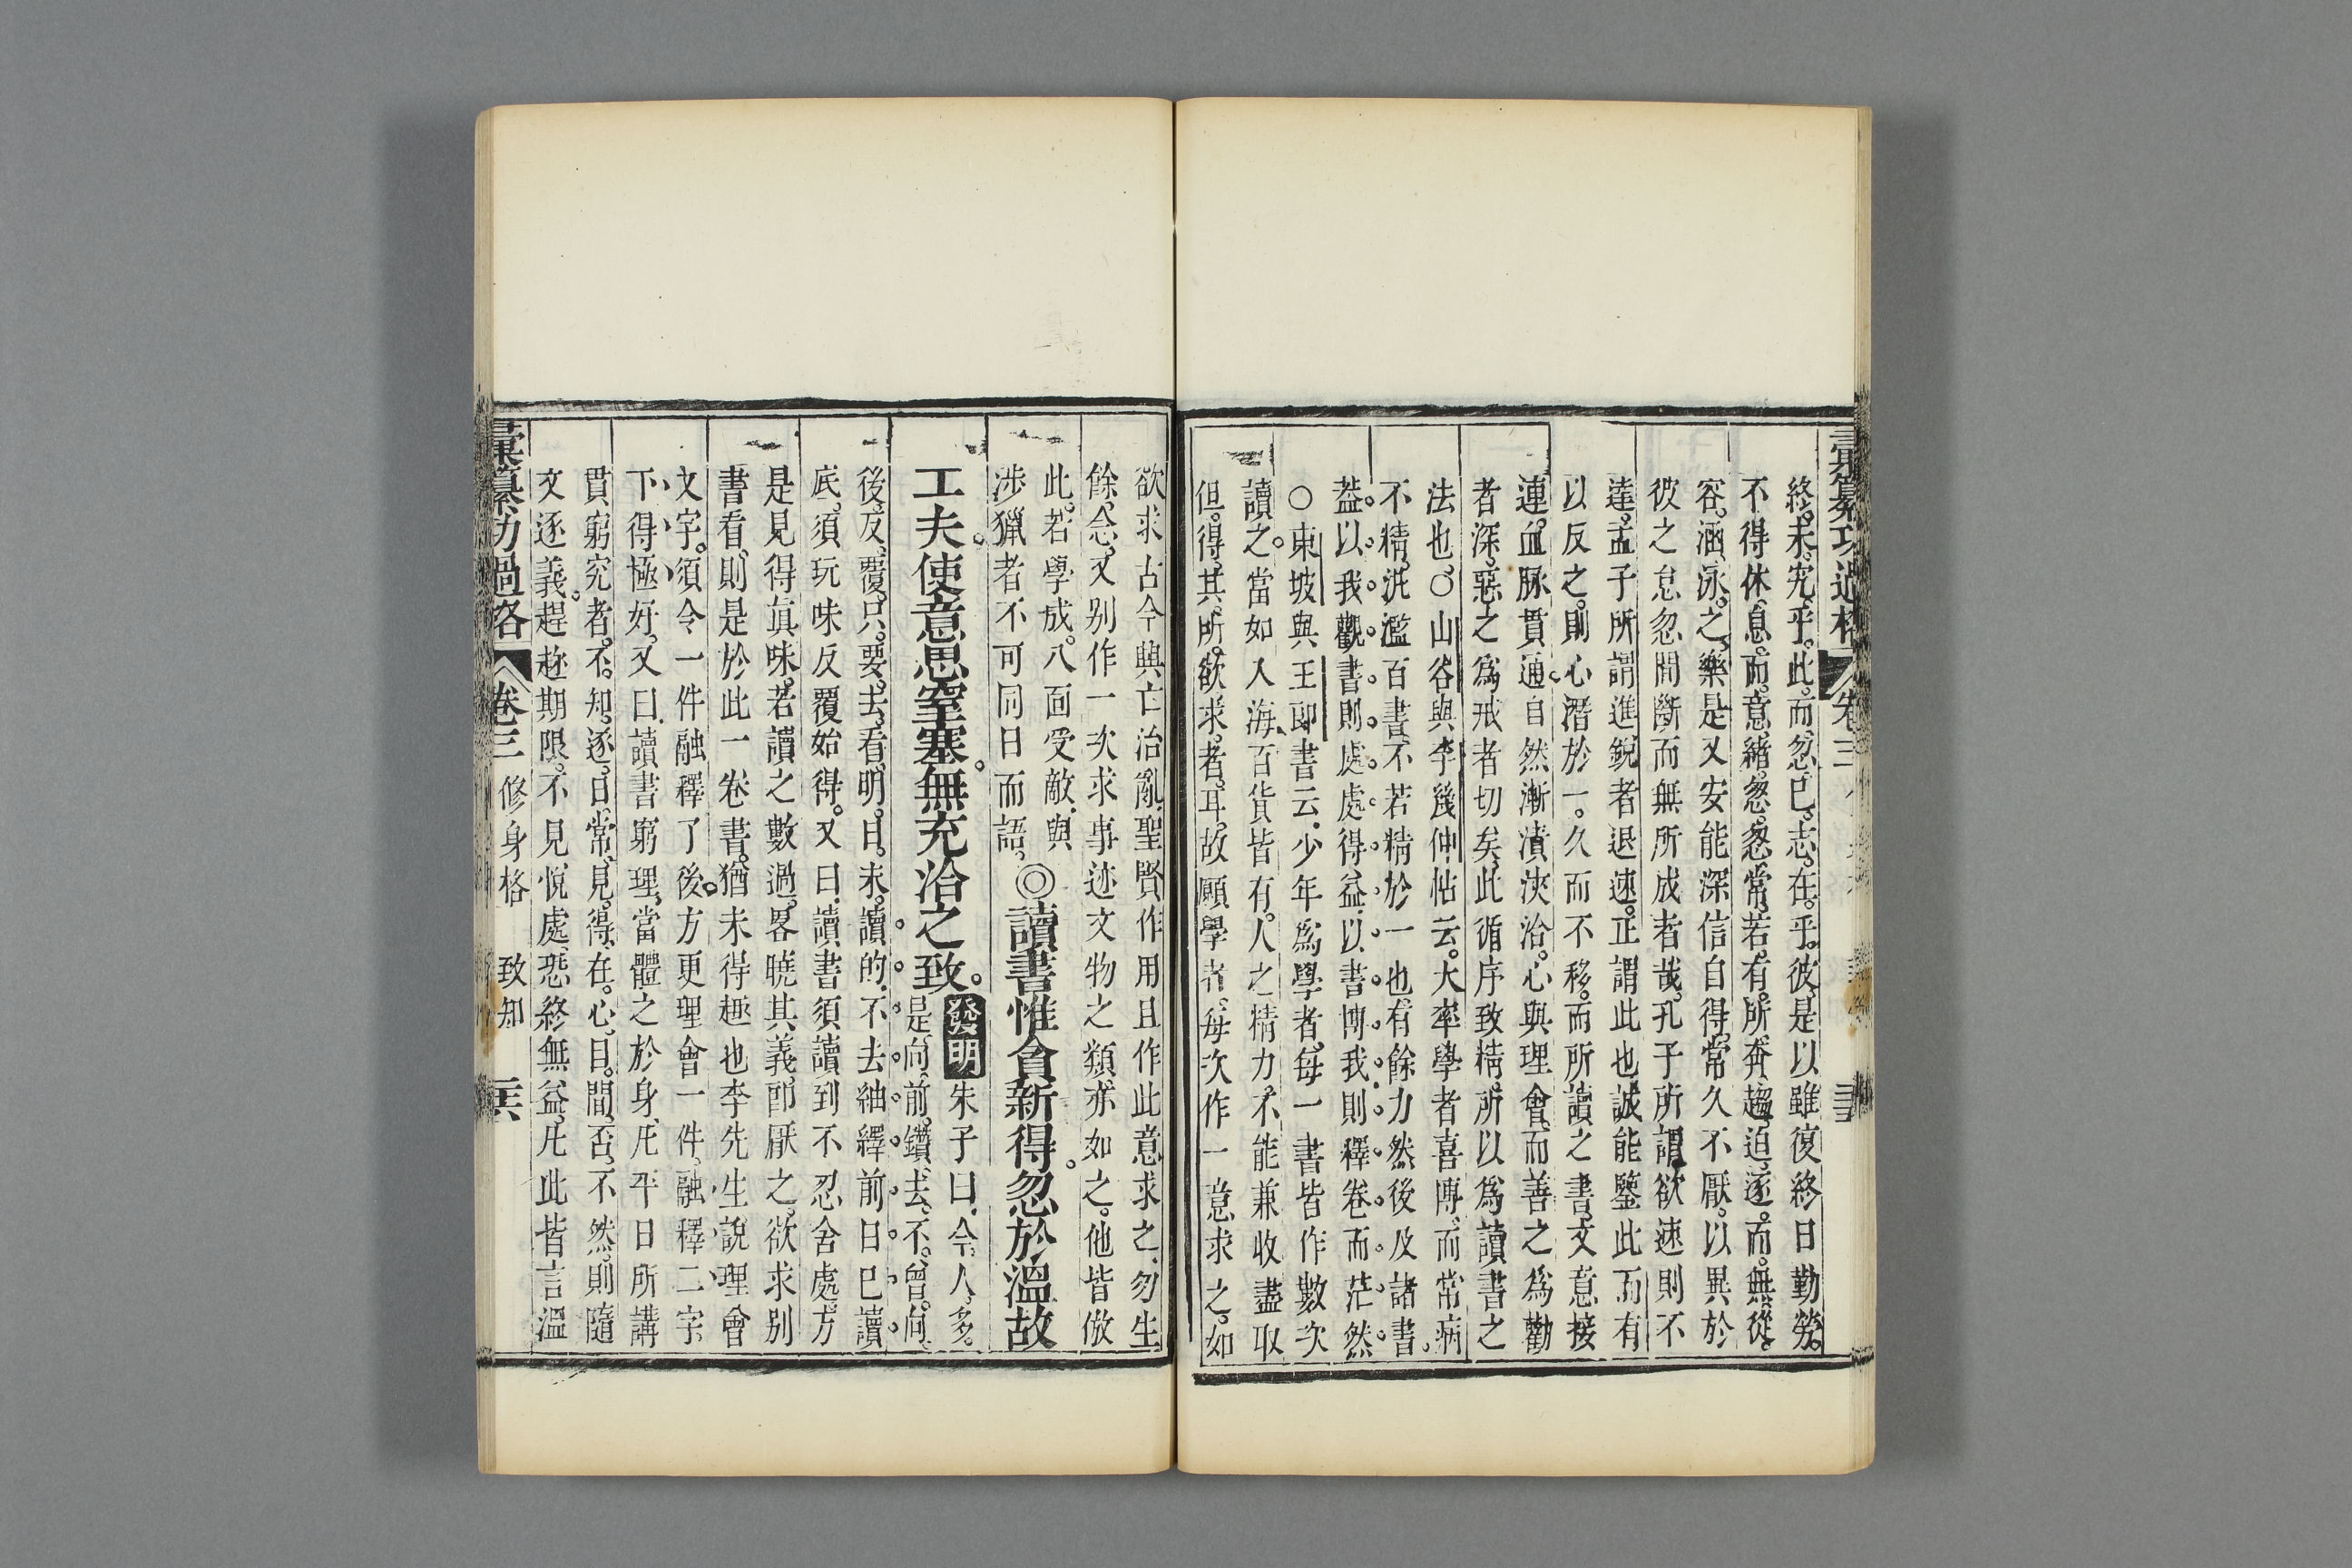 彙纂功過格 卷三
終未究乎此而忽已志在乎彼是以雖復終日勤勞
不得休息而意緒怱怱常若有所奔趨迫逐而無從
容涵泳之樂是又安能深信自得常久不厭以異於
彼之怠忽間斷而無所成者哉孔子所謂欲速則不
達孟子所謂進銳者退速正謂此也誠能鑒此而有
以反之則心潛於一久而不移而所讀之書文意接
連血脉貫通自然漸漬浹洽心與理會而善之爲勸
者深惡之爲戒者切矣此循序致精所以爲讀書之
法也○山谷與李幾仲帖云大率學者喜博而常病
不精汎濫百書不若精於一也有餘力然後及諸書
葢以我觀書則處處得益以書博我則釋卷而茫然
○東坡與王郞書云少年爲學者每一書皆作數次
讀之當如入海百貨皆有人之精力不能兼收盡取
但得其所欲求者耳故願學者每次作一意求之如
欲求古今興亡治亂聖賢作用且作此意求之勿生
餘念又别作一次求事迹文物之類亦如之他皆倣
此若學成八面受敵與
涉獵者不可同日而語◎讀書惟貪新得忽於溫故
工夫使意思窒塞無充洽之致發明朱子曰今人多
是向前鑽去不曾向
後反覆只要去看明日未讀的不去紬繹前日已讀
底須玩味反覆始得又曰讀書須讀到不忍舍處方
是見得眞味若讀之數過畧曉其義卽厭之欲求别
書看則是於此一卷書猶未得趣也李先生說理會
文字須令一件融釋了後方更理會一件融釋二字
下得極好又曰讀書窮理當體之於身凡平日所講
貫窮究者不知逐日常見得在心目間否不然則隨
文逐義趕趂期限不見悅處恐終無益凡此皆言溫
彙纂功過格 卷三 修身格 致知